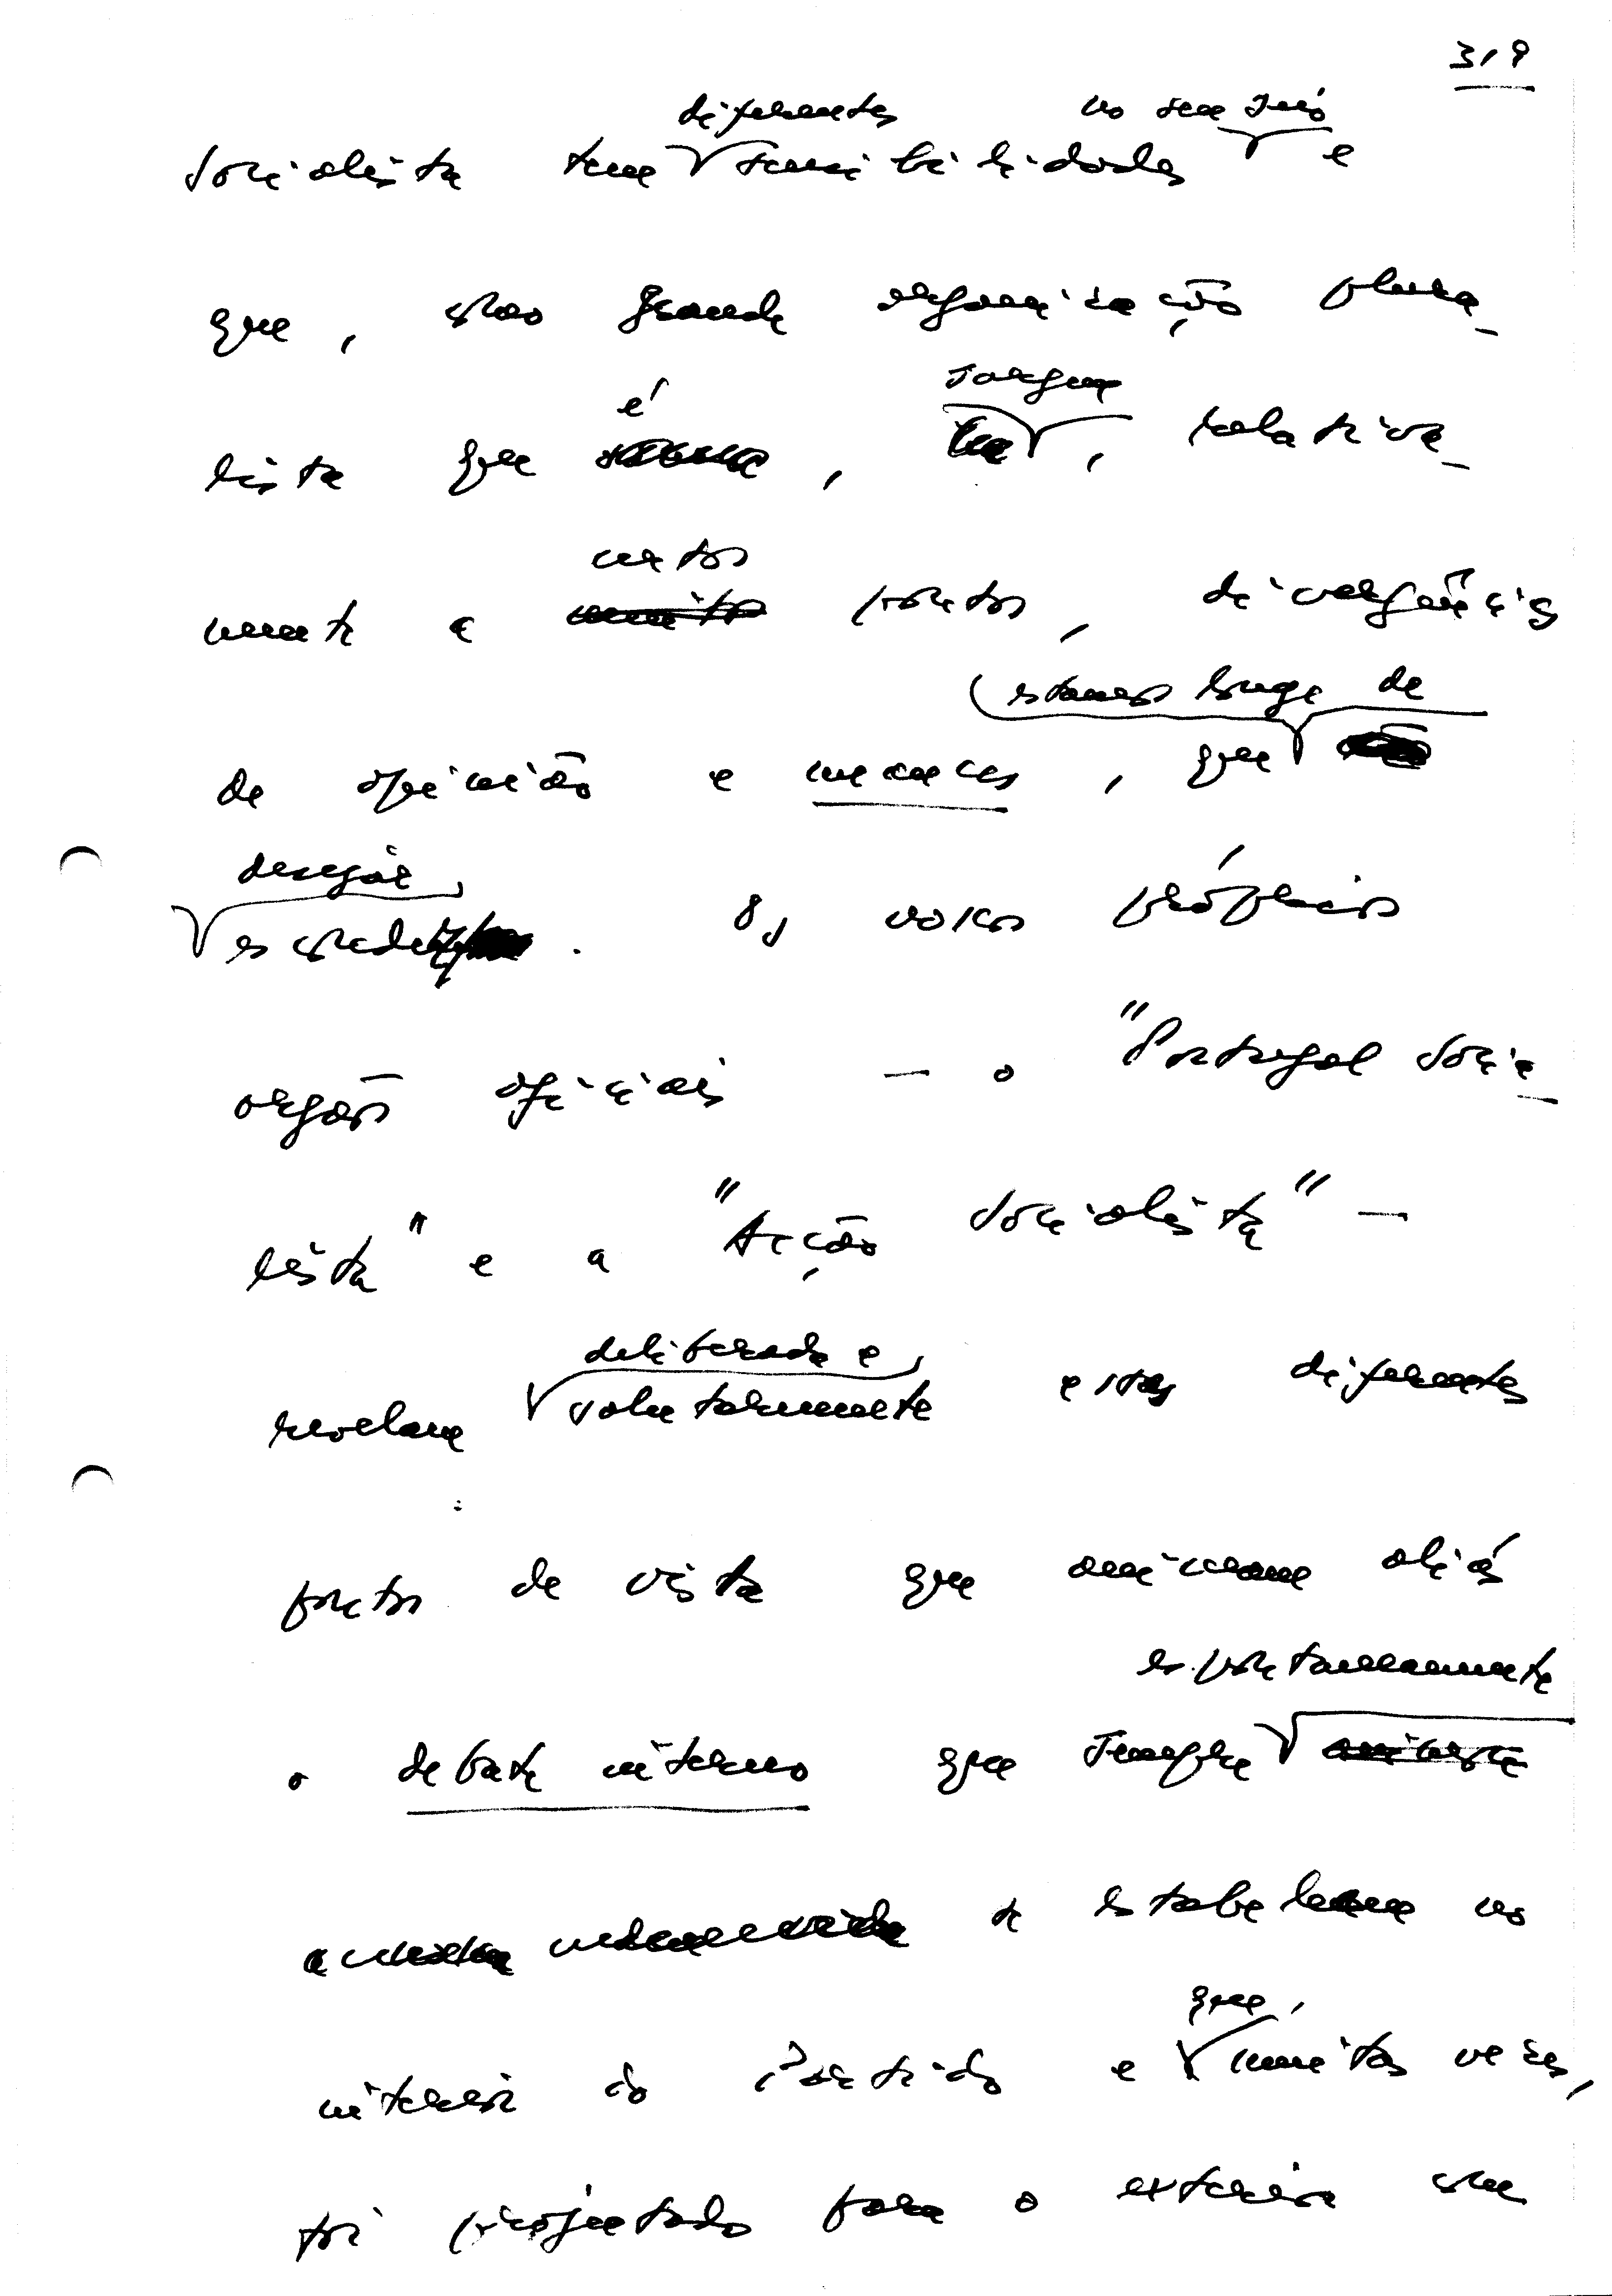 319
diferentes no seu seio
socialista tem sensibilidades e
que, como grande organização plura-
é surgem
lista que, relativa-
certos
mente a pontos, divergências
estamos longe de
de opinião e nuances, que
desejar
esconder. Os nossos próprios
orgãos oficiais — o "Portugal Socia-
lista" e a "Acção Socialista" —
deliberada e
revelam voluntariamente esses diferentes
pontos de vista que animam aliás
espontaneamente
o debate interno que sempre
se estabelece no
que,
interior do Partido e muitas vezes,
foi projectado para o exterior com